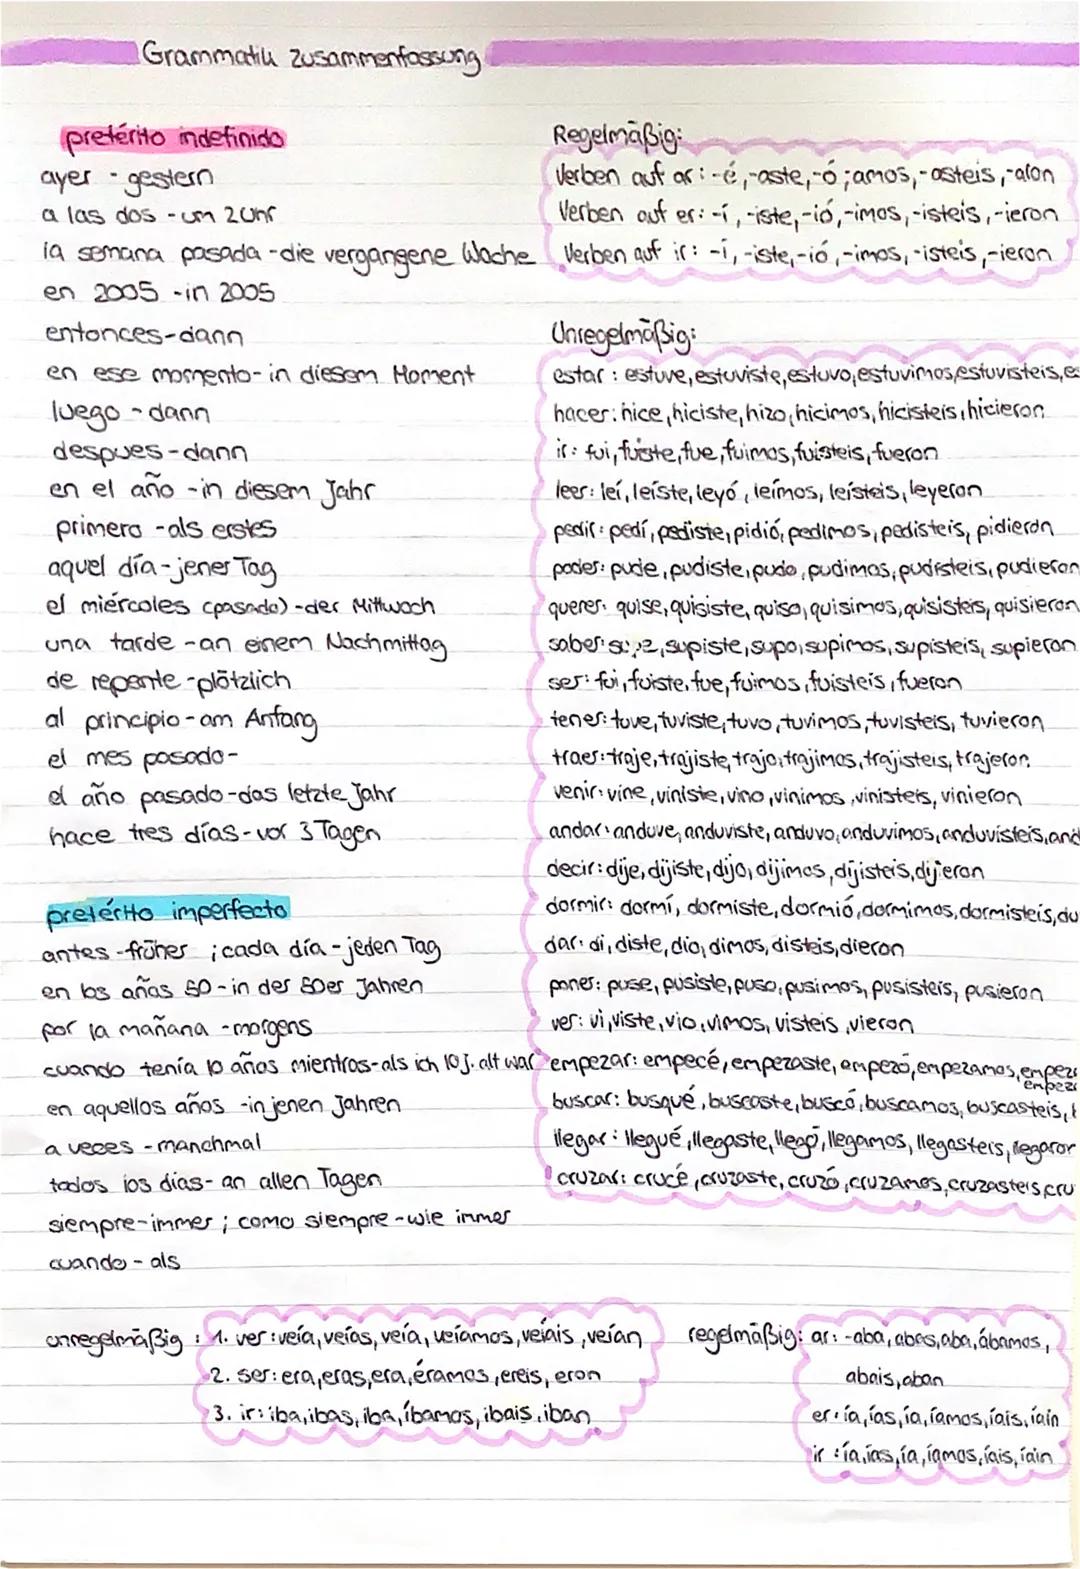 Grammatik Zusammenfassung
pretérito indefinido
ayer - gestern
a las dos - um 2 Uhr
la semana pasada - die vergangene Woche
en 2005 - in 2005
entonces - dann
en ese momento - in diesem Moment
luego - dann
despues - dann
en el año - in diesem Jahr
primero - als erstes
aquel día - jener Tag
el miércoles (pasado) - der Mittwoch
una tarde - an einem Nachmittag
de repente - plötzlich
al principio - am Anfang
el mes pasado -
el año pasado - das letzte Jahr
hace tres días - vor 3 Tagen
Regelmäßig:
Verben auf ar: -é, -aste, -ó; amos, -asteis, -aron
Verben auf er: -í, -iste, -ió, -imos, -isteis, -ieron
Verben auf ir: -í, -iste, -ió, -imos, -isteis, -ieron
Unregelmäßig:
estar: estuve, estuviste, estuvo, estuvimos, estuvisteis, es
hacer: hice, hiciste, hizo, hicimos, hicisteis, hicieron
ir: fui, fuiste, fue, fuimos, fuisteis, fueron
leer: leí, leíste, leyó, leímos, leísteis, leyeron
pedir: pedí, pediste, pidió, pedimos, pedisteis, pidieron
poder: pude, pudiste, pudo, pudimos, pudisteis, pudieron
querer: quise, quisiste, quiso, quisimos, quisisteis, quisieron
saber: supe, supiste, supo, supimos, supisteis, supieron
ser: fui, fuiste, fue, fuimos, fuisteis, fueron
tener: tuve, tuviste, tuvo, tuvimos, tuvisteis, tuvieron
traer: traje, trajiste, trajo, trajimos, trajisteis, trajeron
venir: vine, viniste, vino, vinimos, vinisteis, vinieron
andar: anduve, anduviste, anduvo, anduvimos, anduvisteis, and
decir: dije, dijiste, dijo, dijimos, dijisteis, dijeron
dormir: dormí, dormiste, dormió, dormimos, dormisteis, du
dar: di, diste, dio, dimos, disteis, dieron
poner: puse, pusiste, puso, pusimos, pusisteis, pusieron
ver: vi, viste, vio, vimos, visteis, vieron
empezar: empecé, empezaste, empezó, empezamos, empeza
empeza
buscar: busqué, buscaste, buscó, buscamos, buscasteis,
llegar: llegué, llegaste, llegó, llegamos, llegasteis, llegaron
cruzar: crucé, cruzaste, cruzó, cruzamos, cruzasteis, cru
pretérito imperfecto
antes - früher ; cada día - jeden Tag
en los años 50 - in der 50er Jahren
por la mañana - morgens
cuando tenía 10 años mientras - als ich 10 J. alt war
en aquellos años - in jenen Jahren
a veces - manchmal
todos los dias - an allen Tagen
siempre - immer ; como siempre - wie immer
cuando - als
unregelmäßig : 1. ver: veía, veías, veía, veíamos, veíais, veían
2. ser: era, eras, era, éramos, ereis, eron
3. ir: iba, ibas, iba, íbamos, ibais, iban
regelmäßig: ar: -aba, abas, aba, ábamos,
abais, aban
er: ía, ías, ía, íamos, íais, íain
ir: ía, ías, ía, íamos, íais, íain